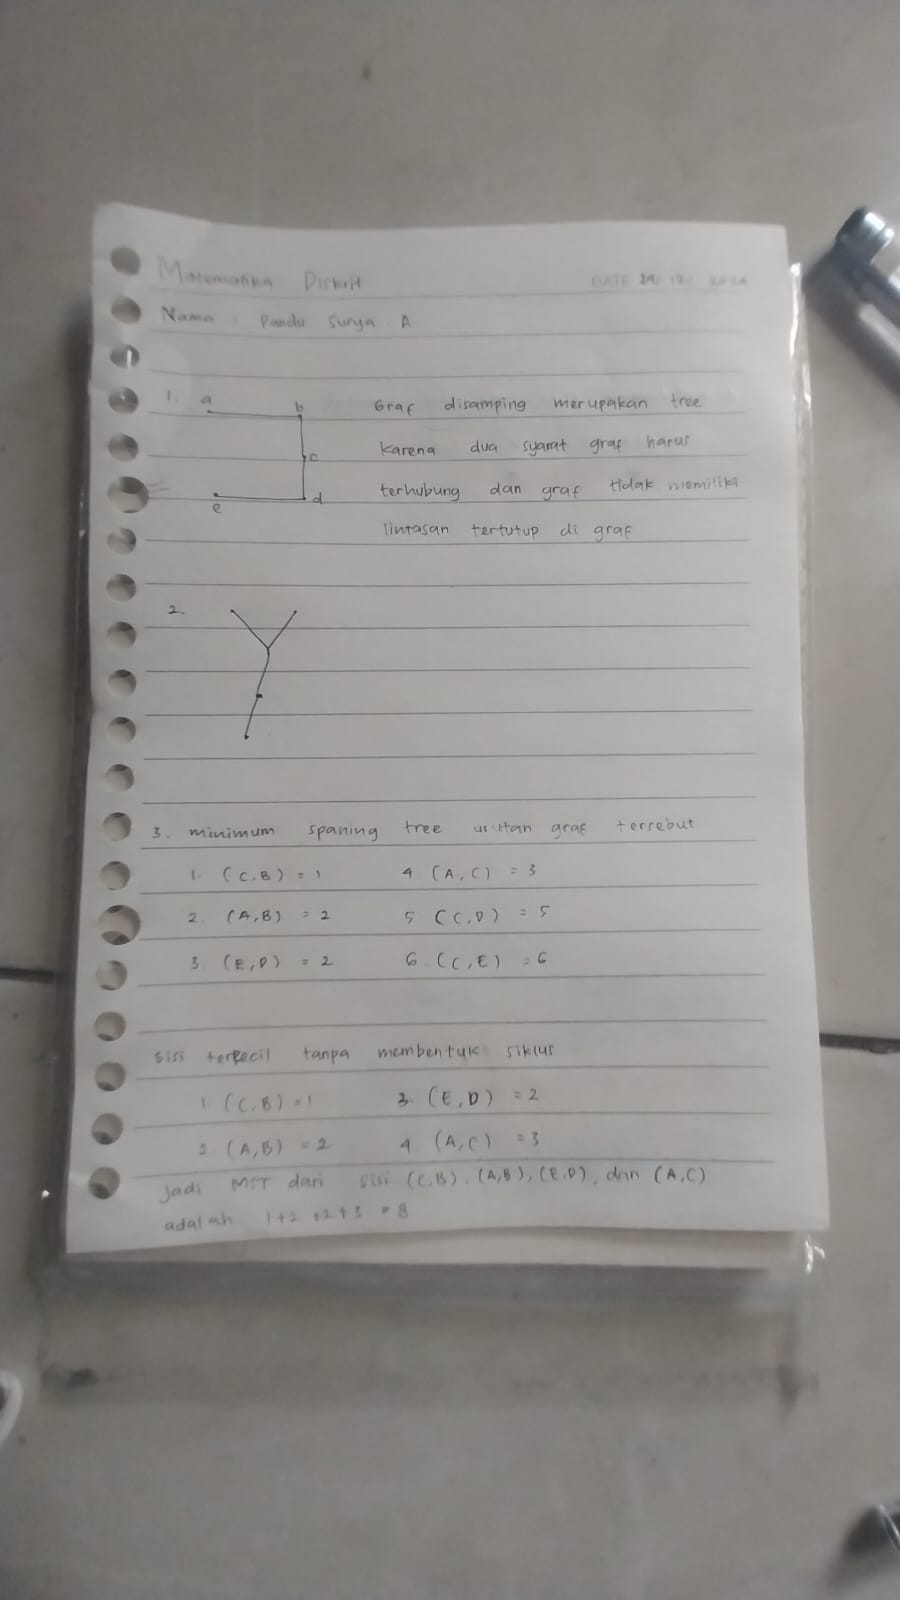 Matematika Diskrit
DATE 24/12/2024
Nama : Pandu Surya . A
1. a b c d e
Graf disamping merupakan tree
karena dua syarat graf harus
terhubung dan graf tidak memiliki
lintasan tertutup di graf
2.
3. minimum spaning tree urutan graf tersebut
1. (C,B) = 1 4 (A,C) = 3
2. (A,B) = 2 5 (C,D) = 5
3. (E,D) = 2 6. (C,E) = 6
sisi terkecil tanpa membentuk siklus
1. (C,B) = 1 3. (E,D) = 2
2. (A,B) = 2 4. (A,C) = 3
jadi MST dari sisi (C,B), (A,B), (E,D), dan (A,C)
adalah 1+2+2+3 = 8